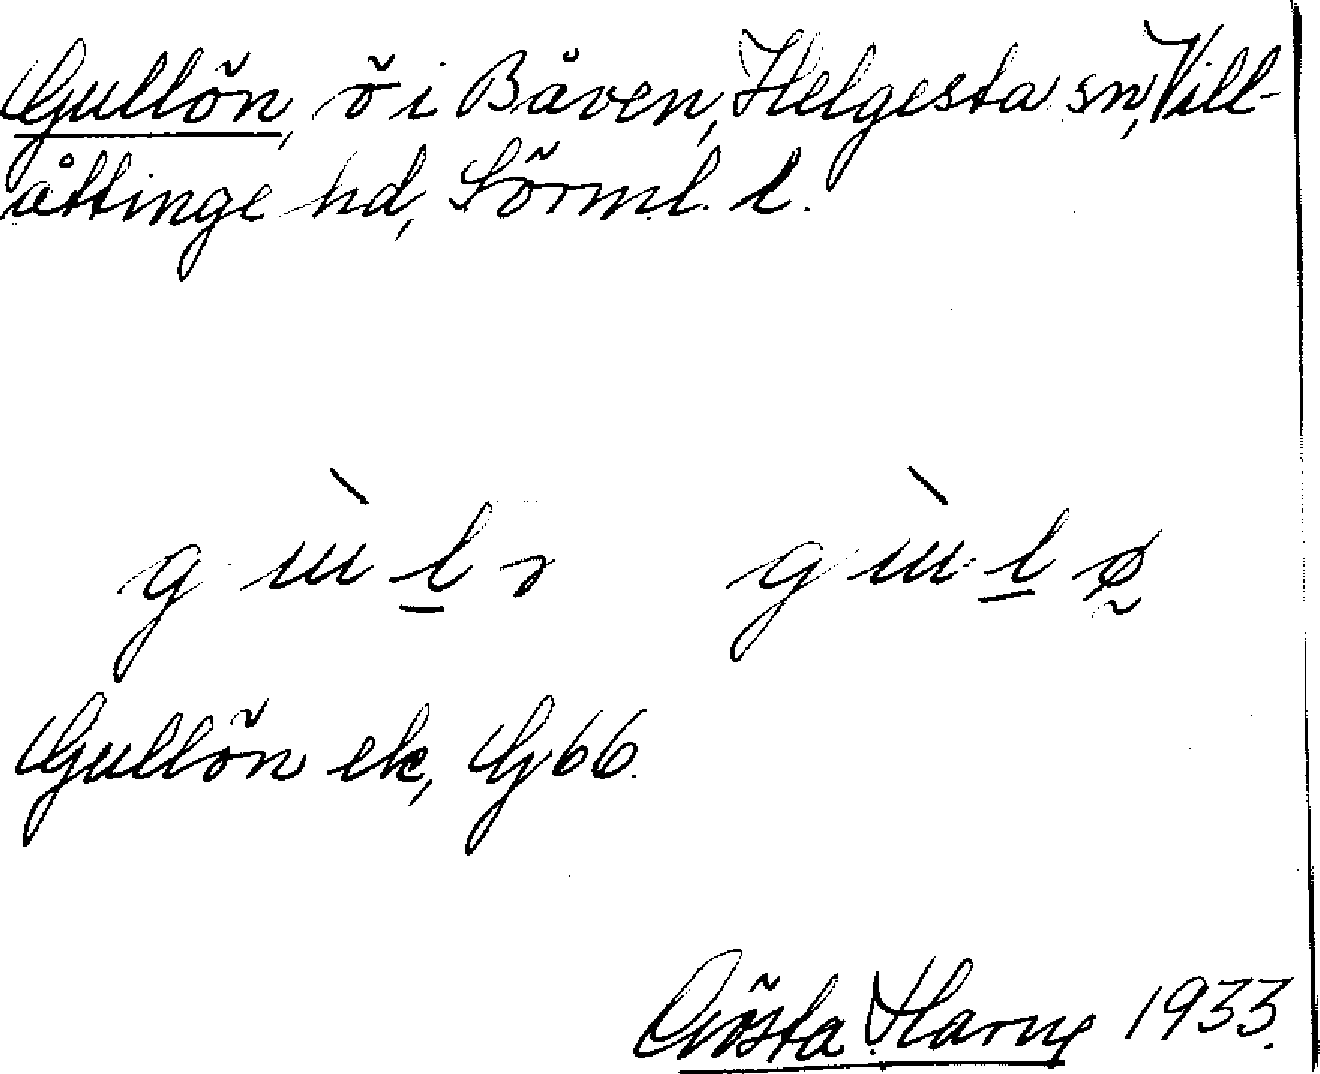 Gullön, ö i Båven, Helgesta sn, Vill-
åttinge hd, Sörml. l.
Gullön ek, G 66.
Gösta Harng 1933.